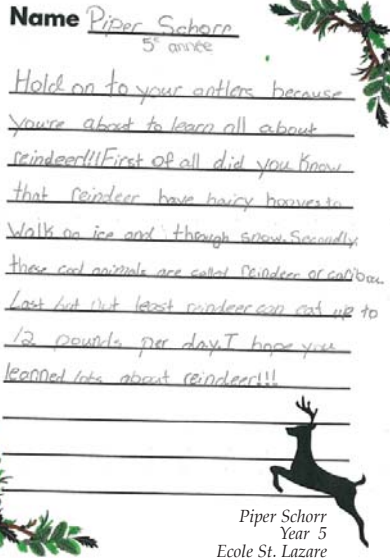 Name Piper Schorr
5e année
Hold on to your antlers because
you're about to learn all about
reindeer!!!First of all did you know
that reindeer have hairy hooves to
Walk on ice and through snow. Secondly,
these cool animals are called reindeer or caribou.
Last but not least reindeer can eat up to
12 pounds per day. I hope you
learned lots about reindeer!!!
Piper Schorr
Year 5
Ecole St. Lazare